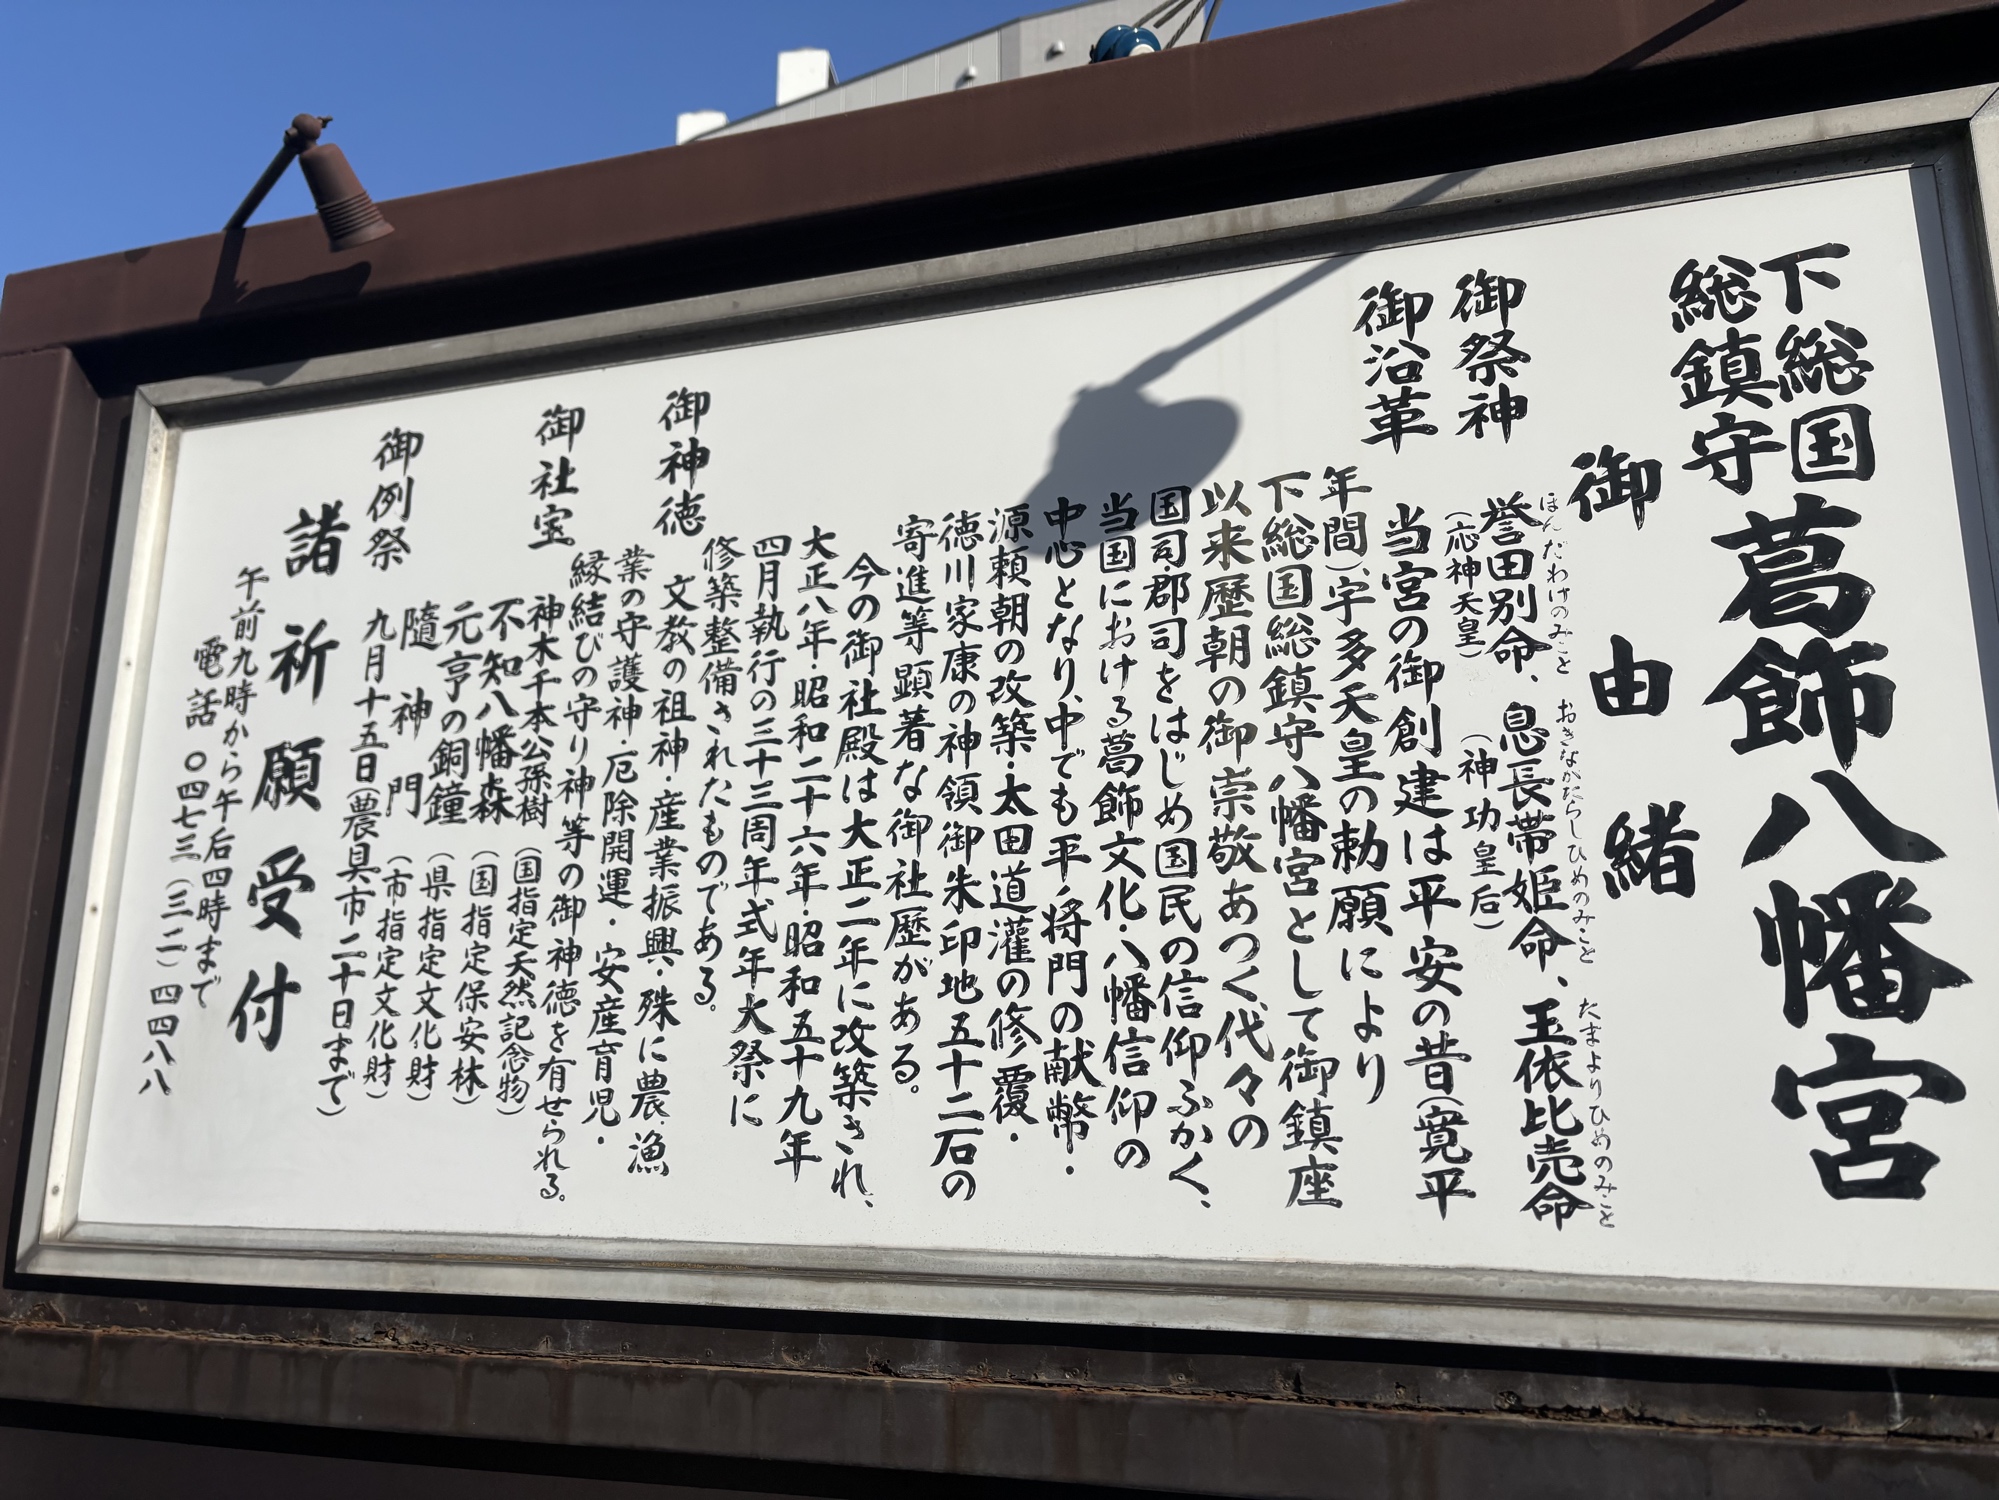 下総国
総鎮守
葛飾八幡宮
御由緒
御祭神
ほんだわけのみこと おきながたらしひめのみこと たまよりひめのみこと
誉田別命、息長帯姫命、玉依比売命
(応神天皇) (神功皇后)
御沿革
当宮の御創建は平安の昔(寛平
年間)、宇多天皇の勅願により
下総国総鎮守八幡宮として御鎮座
以来歴朝の御崇敬あつく代々の
国司・郡司をはじめ国民の信仰ふかく、
当国における葛飾文化・八幡信仰の
中心となり、中でも平ノ将門の献幣・
源頼朝の改築・太田道灌の修覆・
徳川家康の神領御朱印地五十二石の
寄進等顕著な御社歴がある。
今の御社殿は大正二年に改築され、
大正八年・昭和二十六年・昭和五十九年
四月執行の三十三周年式年大祭に
修築整備されたものである。
御神徳
文教の祖神・産業振興・殊に農、漁
業の守護神・厄除開運・安産育児・
縁結びの守り神等の御神徳を有せられる。
御社宝
神木千本公孫樹(国指定天然記念物)
不知八幡森(国指定保安林)
元亨の銅鐘(県指定文化財)
隨神門(市指定文化財)
御例祭
九月十五日(農具市二十日まで)
諸祈願受付
午前九時から午后四時まで
電話〇四七三(三二)四四八八